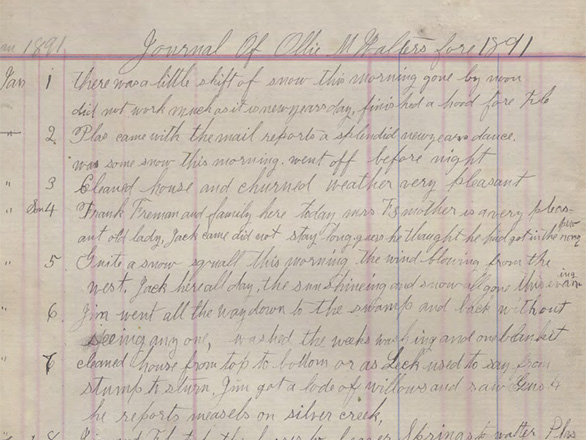 Jan 1891 Journal Of Ollie M Walters fore 1891
Jan 1 there was a little skift of snow this morning gone by noon
did not work much as it is new years day, finished a hood fore
" 2 Plas came with the mail reports a splendid new years dance.
was some snow this morning. went off before night
" 3 Cleaned house and churned weather very pleasant
" Sun 4 Frank Freman and family here today mrs F's mother is a very pleas-
ant old lady, Jack came did not stay long, guess he thought he had got in the wrong
" 5 Quite a snow squall this morning the wind blowing from the
west. Jack here all day, the sun shineing and snow all gone this evening
" 6 Jim went all the way down to the swamp and back without
seeing any one, washed the weeks washing and one blanket
" 7 cleaned house from top to bottom or as Leck used to say from
stump to sturn, Jim got a lode of willows and saw
he reports measels on silver creek,
" 8 Springs